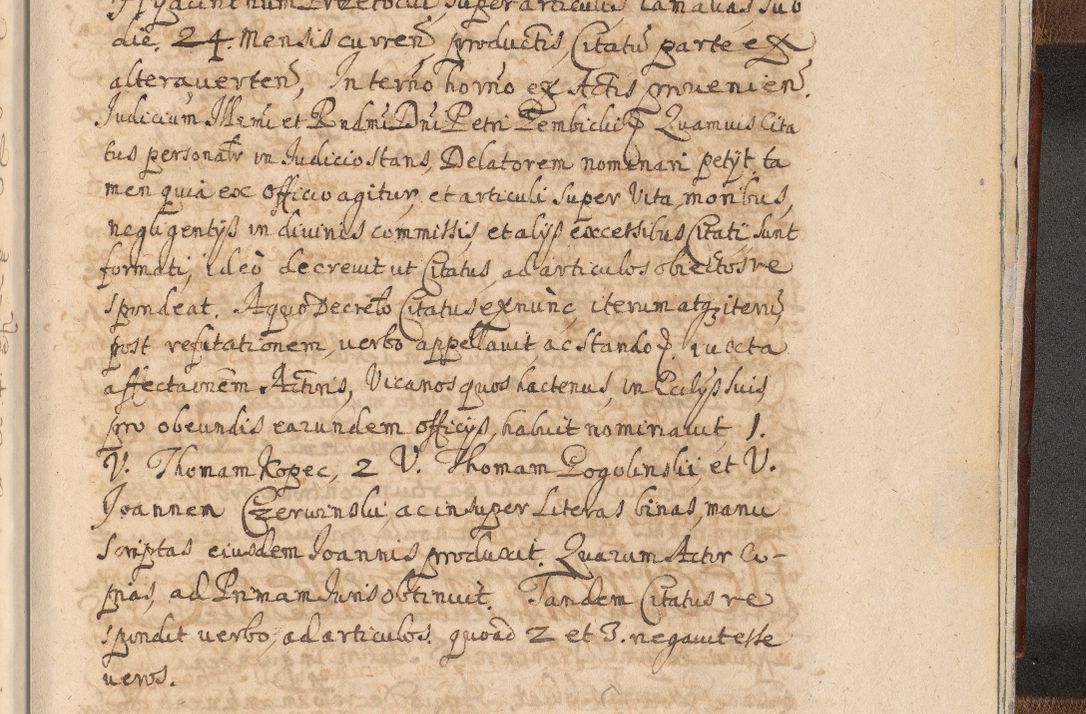 Hyacinthum Przetocki, super articulis in alias sub
die. 24. Mensis curren̄, productis, Citatū parte ex
altera verten̄, In termo horno ex Actis provenien̄.
Judicium Illrmi et Rndmi Dni Petri Gembicki ꝑ Quamuis Cita
tus personalr in Judicio stans, Delatorem nomenari petÿt, ta
men quia ex officio agitur, et articuli super Vita, moribus,
negligentÿs in divinis commissis, et alÿs excessibus Citati sunt
formati, ideò decrevit ut Citatus, ad articulos obiectos re
spondeat. A quo Decreto Citatus ex nunc, iterum atqꝫ iterū,
post refutationem, verbo appellavit, ac stando ꝑ. iuxta
affectaōnem Actoris, Vicarios quos hactenus, in Ecclÿs suis
pro obeundis earundem officÿs, habuit nominavit, 1.
V. Thomam Kopec, 2 V. Thomam Pogolinskii, et V.
Joannem Czerwinski, ac insuper Literas binas, manu
scriptas eiusdem Joannis produxit. Quarum Actor co-
pias, ad Primam Juris obtinuit. Tandem Citatus re
spondit verbo, ad articulos. quoad 2 et 3. negavit esse
veros.